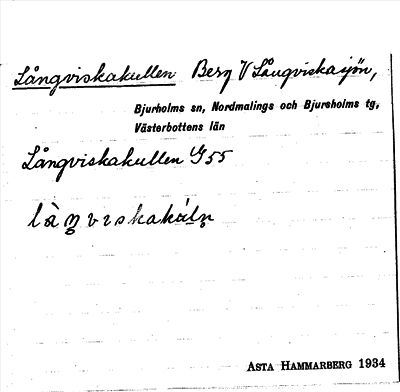 Långviskakullen Berg V Långviskasjön,
Bjurholms sn, Nordmalings och Bjurholms tg,
Västerbottens län
Långviskakullen G55
ASTA HAMMARBERG 1934